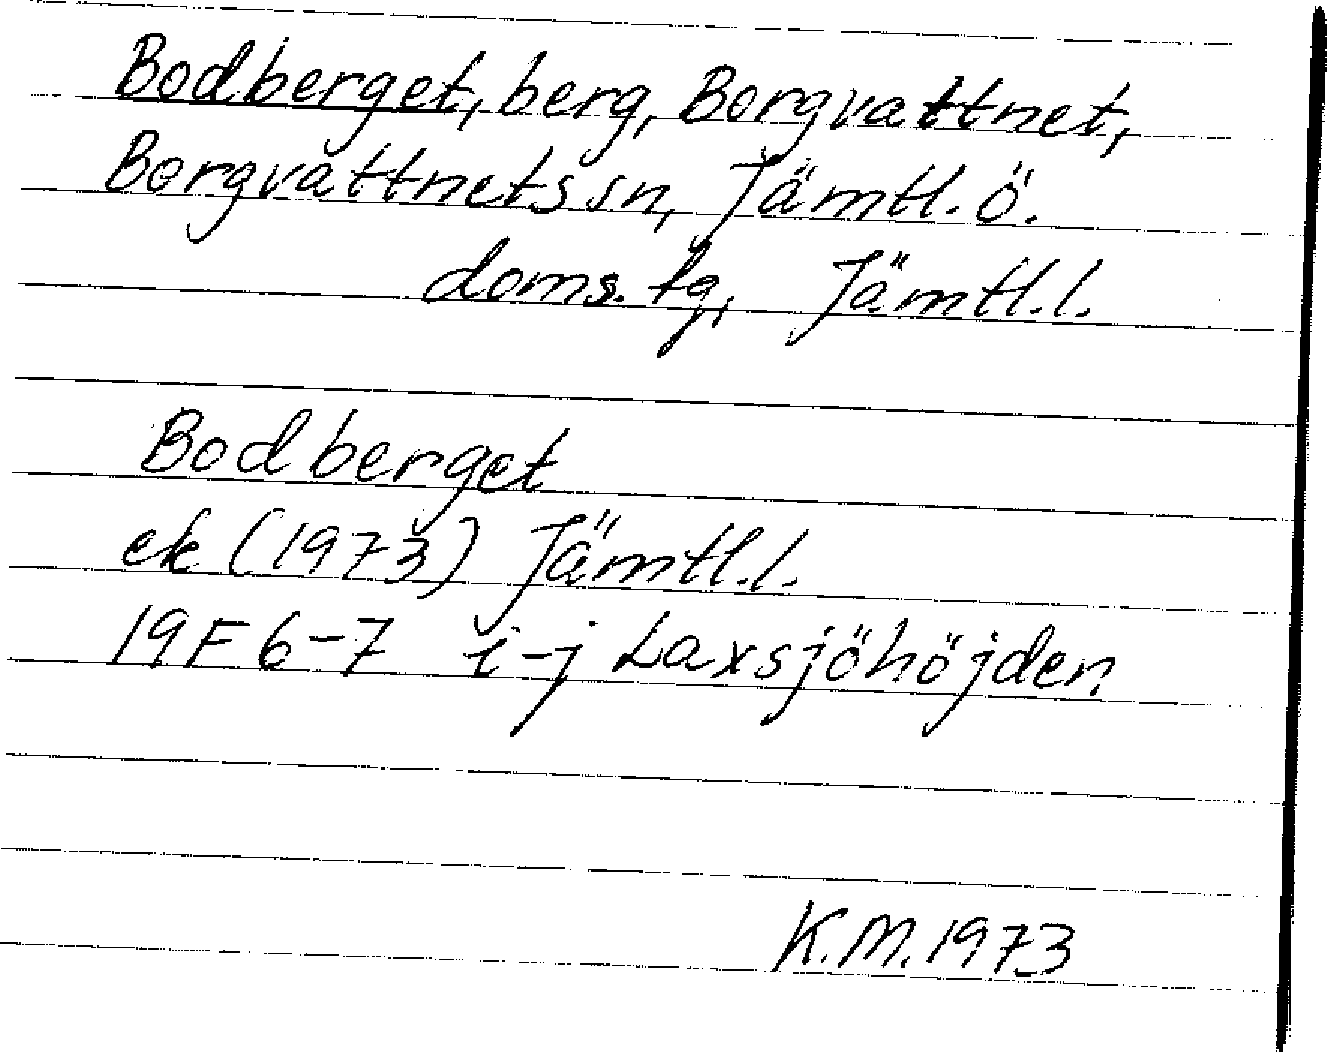 Bodberget, berg, Borgvattnet,
Borgvattnets sn, Jämtl. ö.
doms. tg, Jämtl.l.
Bodberget
ek (1973) Jämtl.l.
19F 6-7 i-j Laxsjöhöjden
K.M. 1973